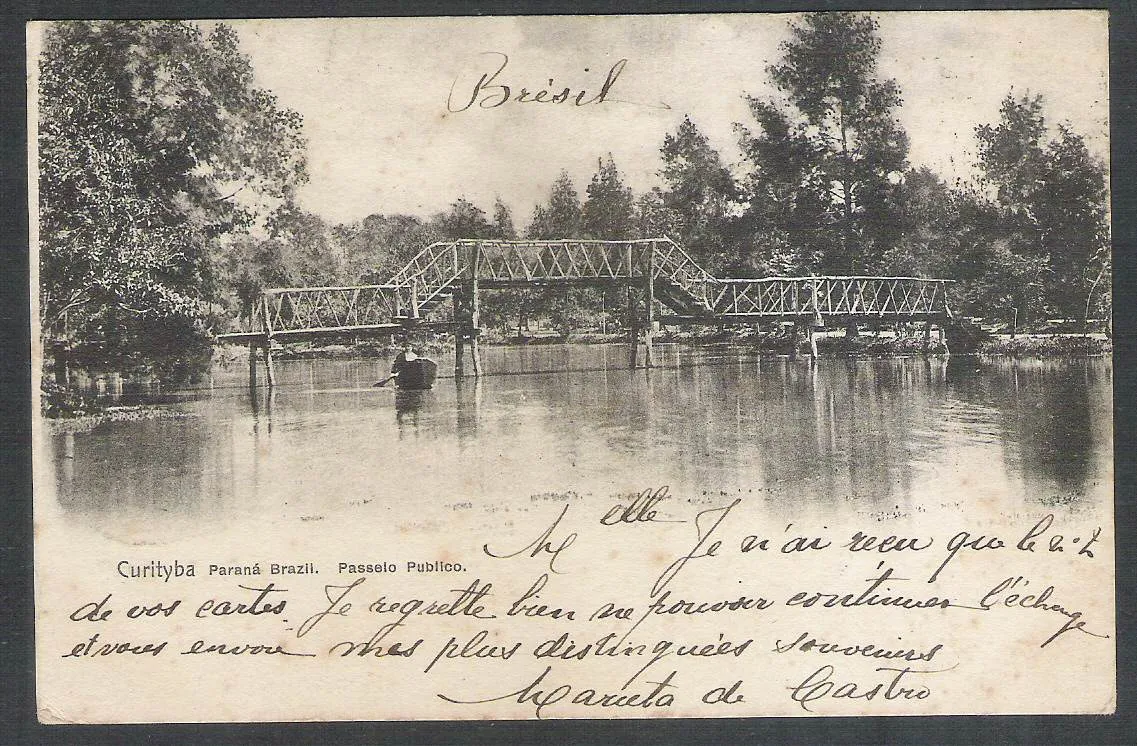 Brésil
Melle Je n'ai reçu que le n: 2
Curityba Paraná Brazil. Passeio Publico.
de vos cartes. Je regrette bien ne pouvoir continuer l'échange
et vous envoie mes plus distinguées souvenirs
Marieta de Castro